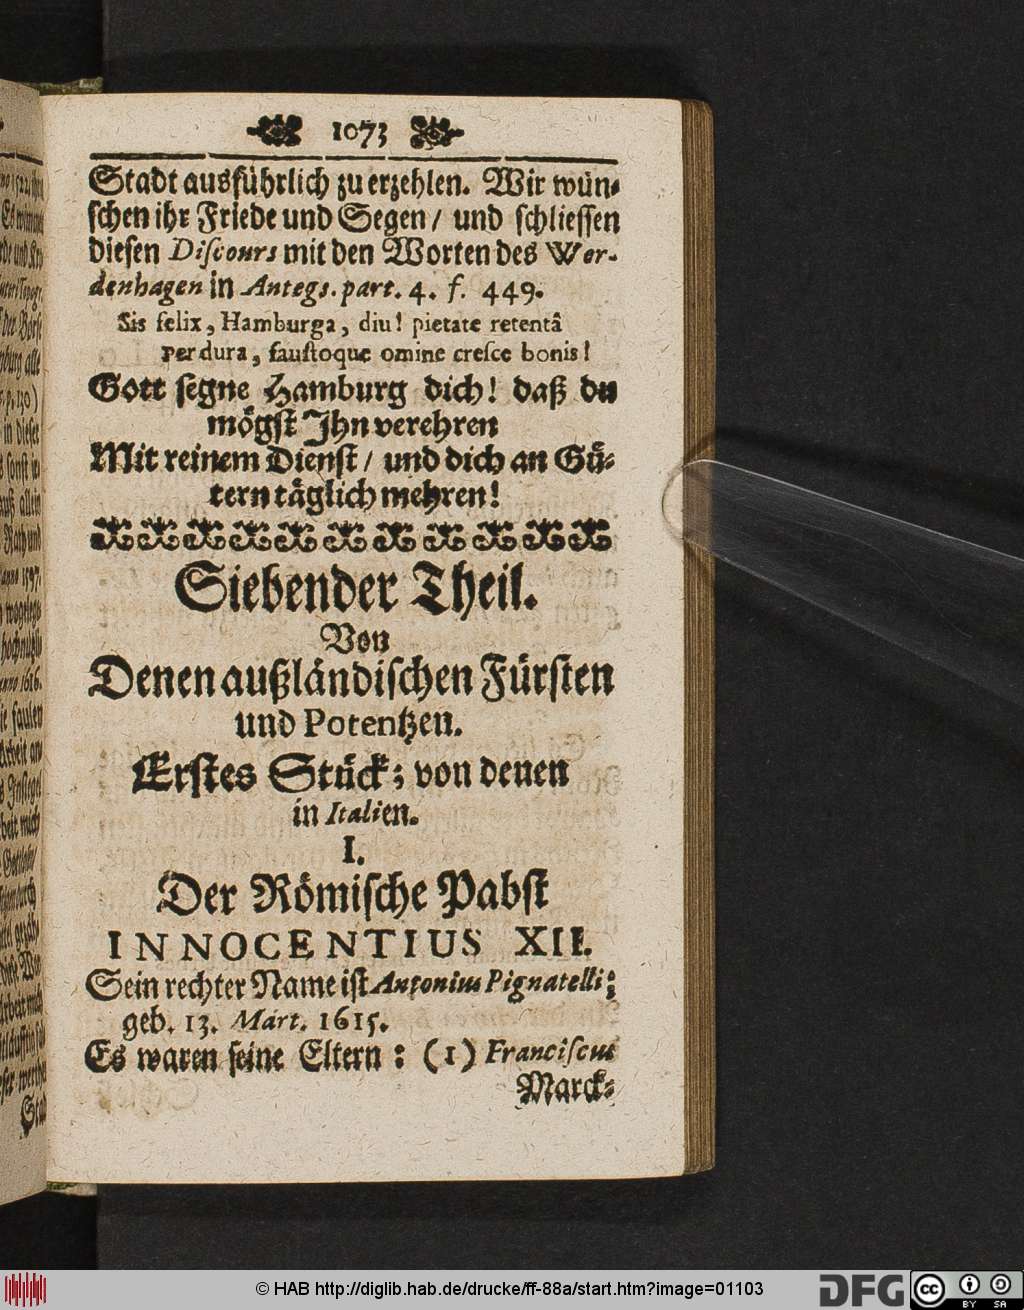 1073
Stadt ausführlich zu erzehlen. Wir wün-
schen ihr Friede und Segen / und schliessen
diesen Discours mit den Worten des Wer-
denhagen in Antegs. part. 4. f. 449.
Sis felix, Hamburga, diu! pietate retentâ
Perdura, faustoque omine cresce bonis!
Gott segne Hamburg dich! daß du
mögst Ihn verehren
Mit reinem Dienst / und dich an Gü-
tern täglich mehren!
Siebender Theil.
Von
Denen außländischen Fürsten
und Potentzen.
Erstes Stück; von denen
in Italien.
I.
Der Römische Pabst
INNOCENTIUS XII.
Sein rechter Name ist Antonius Pignatelli;
geb. 13. Mart. 1615.
Es waren seine Eltern: (1) Franciscus
Marck-
© HAB http://diglib.hab.de/drucke/ff-88a/start.htm?image=01103
DFG
cc
BY SA